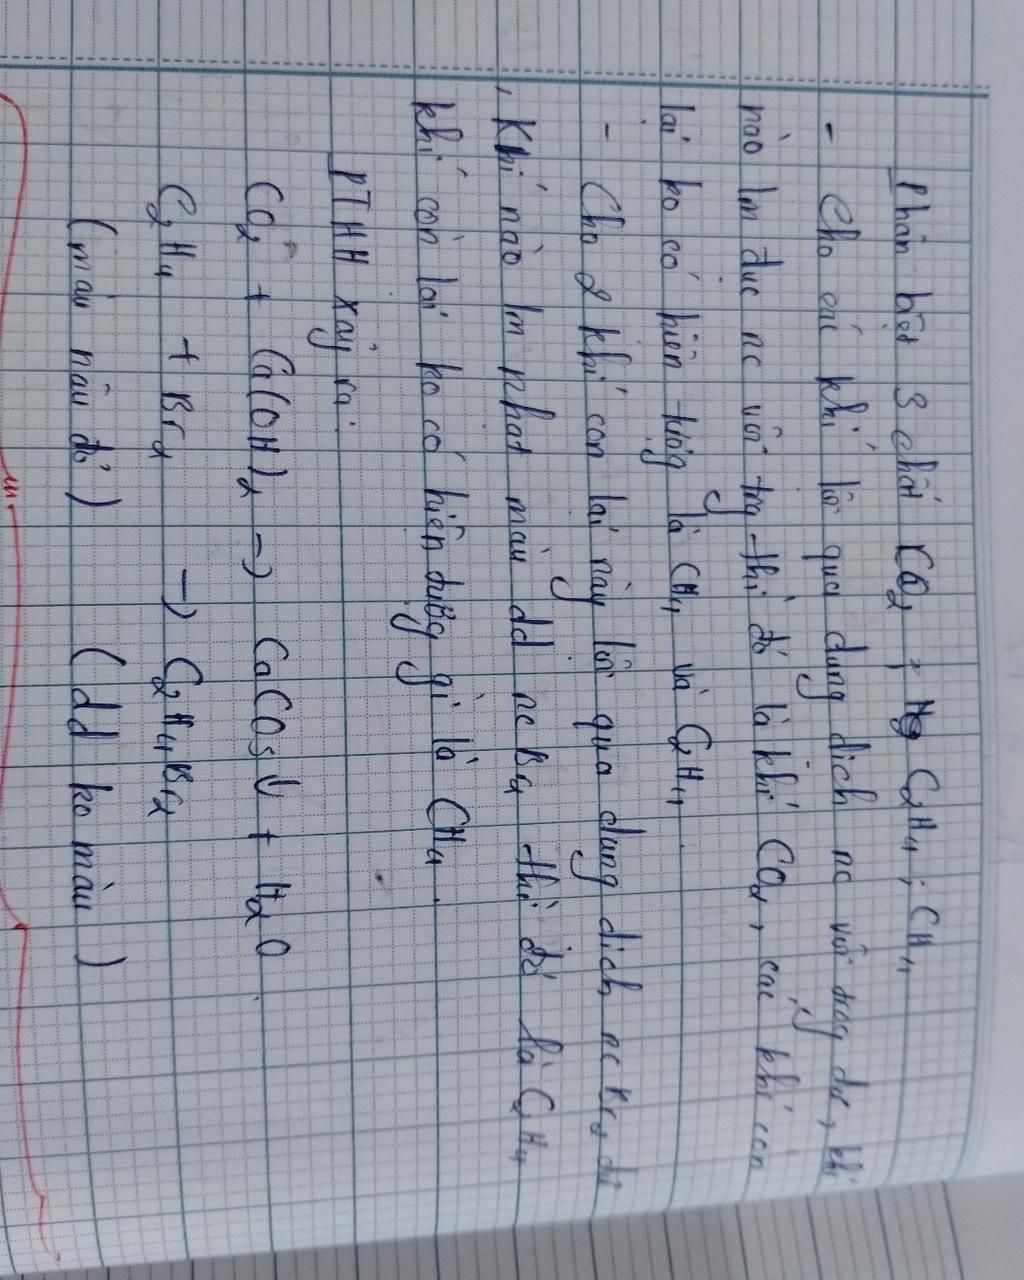 Phân biệt 3 chất CO2 ; C2H4 ; CH4
- Cho các khí lội qua dung dịch nc vôi trong dư, khí
nào lm đục nc vôi trog thì đó là khí CO2, các khí còn
lại ko có hiện tượng là CH4 và C2H4
- Cho 2 khí con lại này lội qua dung dịch nc Br2 dư
, Khí nào lm nhạt màu dd nc Br2 thì đó là C2H4
khí còn lại ko có hiện tượng gì là CH4.
PTHH xảy ra:
CO2 + Ca(OH)2 -> CaCO3↓ + H2O
C2H4 + Br2 -> C2H4Br2
(màu nâu đỏ) (dd ko màu)